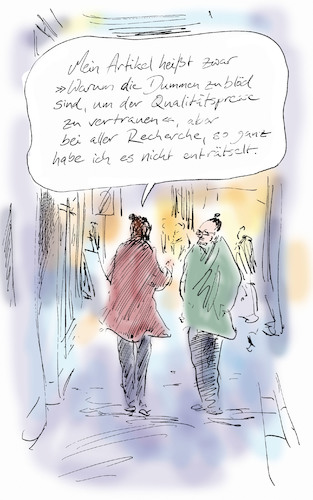 Mein Artikel heißt zwar
»Warum die Dummen zu blöd
sind, um der Qualitätspresse
zu vertrauen«, aber
bei aller Recherche, so ganz
habe ich es nicht enträtselt.